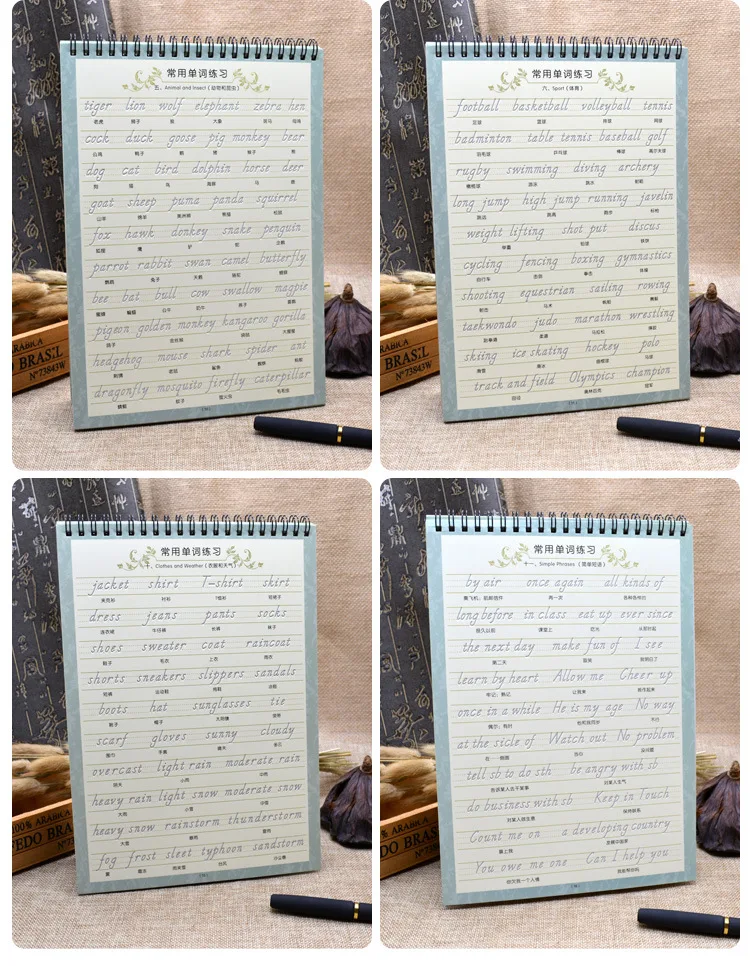 常用单词练习
五、Animal and Insect（动物和昆虫）
tiger lion wolf elephant zebra hen
老虎 狮子 狼 大象 斑马 母鸡
cock duck goose pig monkey bear
公鸡 鸭子 鹅 猪 猴子 熊
dog cat bird dolphin horse deer
狗 猫 鸟 海豚 马 鹿
goat sheep puma panda squirrel
山羊 绵羊 美洲狮 熊猫 松鼠
fox hawk donkey snake penguin
狐狸 鹰 驴 蛇 企鹅
parrot rabbit swan camel butterfly
鹦鹉 兔子 天鹅 骆驼 蝴蝶
bee bat bull cow swallow magpie
蜜蜂 蝙蝠 公牛 奶牛 燕子 喜鹊
pigeon golden monkey kangaroo gorilla
鸽子 金丝猴 袋鼠 大猩猩
hedgehog mouse shark spider ant
刺猬 老鼠 鲨鱼 蜘蛛 蚂蚁
dragonfly mosquito firefly caterpillar
蜻蜓 蚊子 萤火虫 毛毛虫
ARABICA
BRASIL
Nº73843W
常用单词练习
六、Sport（体育）
football basketball volleyball tennis
足球 篮球 排球 网球
badminton table tennis baseball golf
羽毛球 乒乓球 棒球 高尔夫球
rugby swimming diving archery
橄榄球 游泳 跳水 射箭
long jump high jump running javelin
跳远 跳高 跑步 标枪
weight lifting shot put discus
举重 铅球 铁饼
cycling fencing boxing gymnastics
自行车 击剑 拳击 体操
shooting equestrian sailing rowing
射击 马术 帆船 赛艇
taekwondo judo marathon wrestling
跆拳道 柔道 马拉松 摔跤
skiing ice skating hockey polo
滑雪 滑冰 曲棍球 马球
track and field Olympics champion
田径 奥林匹克 冠军
ARABICA
BRASIL
Nº73843W
常用单词练习
十、Clothes and Weather（衣服和天气）
jacket shirt T-shirt skirt
夹克衫 衬衫 T恤衫 短裙子
dress jeans pants socks
连衣裙 牛仔裤 长裤 袜子
shoes sweater coat raincoat
鞋子 毛衣 上衣 雨衣
shorts sneakers slippers sandals
短裤 运动鞋 拖鞋 凉鞋
boots hat sunglasses tie
靴子 帽子 太阳镜 领带
scarf gloves sunny cloudy
围巾 手套 晴天 多云
overcast light rain moderate rain
阴天 小雨 中雨
heavy rain light snow moderate snow
大雨 小雪 中雪
heavy snow rainstorm thunderstorm
大雪 暴雨 雷雨
fog frost sleet typhoon sandstorm
雾 霜冻 雨夹雪 台风 沙尘暴
100% ARABICA
BRASIL
常用单词练习
十一、Simple Phrases（简单短语）
by air once again all kinds of
乘飞机、航邮信件 再一次 各种各样的
long before in class eat up ever since
很久以前 课堂上 吃光 从那时起
the next day make fun of I see
第二天 取笑 我明白了
learn by heart Allow me Cheer up
牢记；熟记 让我来 振作起来
once in a while He is my age No way
偶尔；有时 他和我同岁 不行
at the sicle of Watch out No problem
在…侧面 当心 没问题
tell sb to do sth be angry with sb
告诉某人去干某事 对某人生气
do business with sb Keep in Touch
对某人做生意 保持联系
Count me on a developing country
算上我 发展中国家
You owe me one Can I help you
你欠我一个人情 我能帮你吗
100% ARABICA
BRASIL
Nº73843W